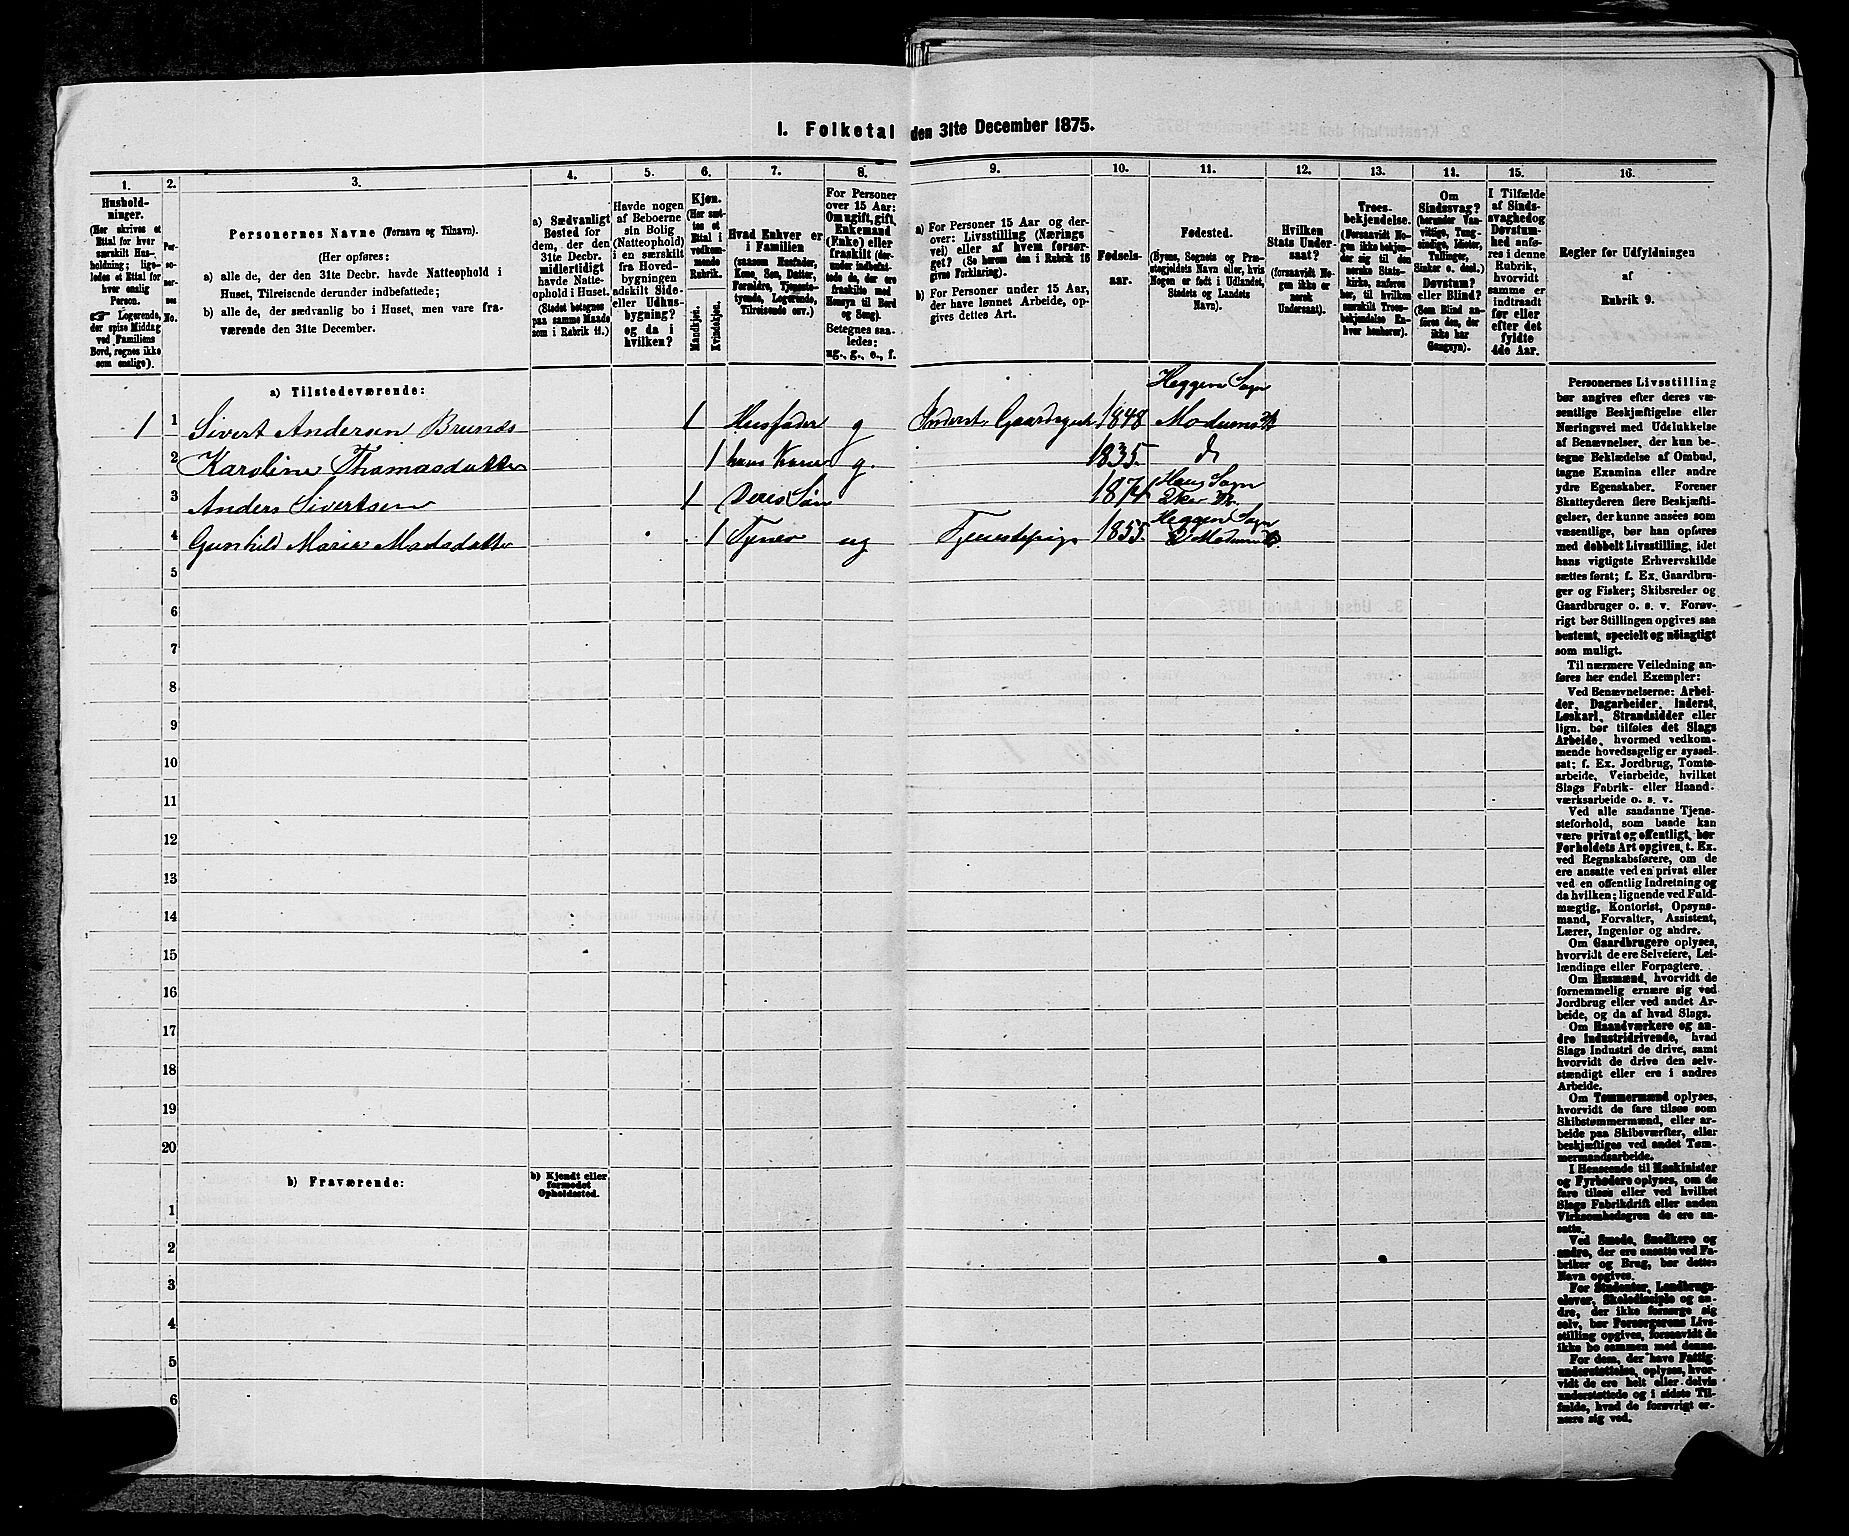 1. Folketal den 31te December 1875.
1.
Hushold-
ninger.
(Her skrives et
Ettal for hver
særskilt Hus-
holdning; lige-
ledes et Ettal for
hver enslig
Person.
☞ Logerende,
der spise Middag
ved Familiens
Bord, regnes ikke
som enslige).
2.
Per-
so-
ner-
nes
No.
3.
Personernes Navne (Fornavn og Tilnavn).
(Her opføres:
a) alle de, der den 31te Decbr. havde Natteophold i
Huset, Tilreisende derunder indbefattede;
b) alle de, der sædvanlig bo i Huset, men vare fra-
værende den 31te December.
4.
a) Sædvanligt
Bosted for
dem, der den
31te Decbr.
midlertidigt
havde Natte-
ophold i Huset.
(Stedet betegnes
paa samme Maade
som i Rubrik 11.)
5.
Havde nogen
af Beboerne
sin Bolig
(Natteophold)
i en særskilt
fra Hoved-
bygningen
adskilt Side-
eller Udhus-
bygning?
og da i
hvilken?
6.
Kjøn.
(Her sæt-
tes et
Ettal i
vedkom-
mende
Rubrik.
Mandkjøn.
Kvindekjøn.
7.
Hvad Enhver er
i Familien
(saasom Husfader,
Kone, Søn, Datter,
Forældre, Tjeneste-
tyende, Logerende,
Tilreisende osv.)
8.
For Personer
over 15 Aar:
Om ugift, gift,
Enkemand
(Enke) eller
fraskilt (der-
under indbefat-
tede de, der ere
fraskilte med
Hensyn til Bord
og Seng).
Betegnes saa-
ledes:
ug., g., e., f.
9.
a) For Personer 15 Aar og der-
over: Livsstilling (Nærings
vei) eller af hvem forsør-
get? (Se herom den i Rubrik 16
givne Forklaring).
b) For Personer under 15 Aar,
der have lønnet Arbeide, op-
gives dettes Art.
10.
Fødsels-
aar.
11.
Fødested.
(Byens, Sognets og Præ-
stegjeldets Navn eller, hvis
Nogen er født i Udlandet,
Stedets og Landets
Navn).
12.
Hvilken
Stats Under-
saat?
(forsaavidt No-
gen ikke er
norsk
Undersaat).
13.
Troes-
bekjendelse.
(Forsaavidt No-
gen ikke bekjen-
der sig til den
norske Stats-
kirke, anføres
her, til hvilken
særskilt Troes-
bekjendelse En-
hver henhører).
14.
Om
Sindssvag?
(herunder Van-
vittige, Tung-
sindige, Idioter,
Tullinger,
Sinker o. desl.)
Døvstum?
eller Blind?
(Som Blind an-
føres den, der
ikke har
Gangsyn).
15.
I Tilfælde
af Sinds-
svaghed og
Døvstum-
hed anfø-
res i denne
Rubrik,
hvorvidt
samme er
indtraadt
før eller
efter det
fyldte
4de Aar.
16.
Regler for Udfyldningen
af
Rubrik 9.
a) Tilstedeværende:
Heggens Sogn
1 1 Sivert Andersen Brunæs 1 Husfader g Inderst, Gaardsgut 1848 Modums
2 Karoline Thomasdatter 1 hans Kone g. 1835. d
3 Anders Sivertsen 1 Deres Søn 1874 Haug Sogn
Eker
4 Gunhild Marie Madsdatter 1 Tjener ug Tjenestepige 1855. Heggens Sogn
Modum
5
6
7
8
9
10
11
12
13
14
15
16
17
18
19
20
b) Fraværende:
b) Kjendt eller
formodet
Opholdssted.
1
2
3
4
5
6
Personernes Livsstilling
bør angives efter deres væ-
sentlige Beskjæftigelse eller
Næringsvei med Udelukkelse
af Benævnelser, der kun be-
tegne Beklædelse af Ombud,
tagne Examina eller andre
ydre Egenskaber. Forener
Skatteyderen flere Beskjæfti-
gelser, der kunne ansées som
væsentlige, bør han opføres
med dobbelt Livsstilling, idet
hans vigtigste Erhvervskilde
sættes først; f. Ex. Gaardbru-
ger og Fisker; Skibsreder og
Gaardbruger o. s. v. Forøv-
rigt bør Stillingen opgives saa
bestemt, specielt og nöiagtigt
som muligt.
Til nærmere Veiledning an-
føres her endel Exempler:
Ved Benævnelserne: Arbei-
der, Dagarbeider, Inderst,
Løskarl, Strandsidder eller
lign. bør tilføies det Slags
Arbeide, hvormed vedkom-
mende hovedsagelig er syssel-
sat; f. Ex. Jordbrug, Tomte-
arbeide, Veiarbeide, hvilket
Slags Fabrik- eller Haand-
værksarbeide o. s. v.
Ved alle saadanne Tjene-
steforhold, som baade kan
være privat og offentligt, bør
Forholdets Art opgives, t. Ex.
ved Regnskabsførere, om de
ere ansatte ved en privat eller
ved en offentlig Indretning og
da hvilken; lignende ved Fuld-
mægtig, Kontorist, Opsyns-
mand, Forvalter, Assistent,
Lærer, Ingeniør og andre.
Om Gaardbrugere oplyses,
hvorvidt de ere Selveiere, Lei-
lændinge eller Forpagtere.
Om Husmænd, hvorvidt de
fornemmelig ernære sig ved
Jordbrug eller ved andet Ar-
beide, og da af hvad Slags.
Om Haandværkere og an-
dre Industridrivende, hvad
Slags Industri de drive, samt
hvorvidt de drive den selv-
stændigt eller ere i andres
Arbeide.
Om Tømmermænd oplyses,
hvorvidt de fare tilsøs som
Skibstømmermænd, eller ar-
beide paa Skibsværfter, eller
beskjæftiges ved andet Tøm-
mermandsarbeide.
I Henseende til Maskinister
og Fyrbødere oplyses, om de
fare tilsøs eller ved hvilket
Slags Fabrikdrift eller anden
Virksomhedsgren de ere an-
satte.
Ved Smede, Snedkere og
andre, der ere ansatte ved Fa-
briker og Brug, bør dettes
Navn opgives.
For Studenter, Landbrugs-
elever, Skoledisciple og an-
dre, der ikke forsørge sig
selv, bør Forsørgerens Livs-
stilling opgives, forsaavidt de
ikke bo sammen med denne.
For dem, der have Fattig-
understøttelse, oplyses, hvor-
vidt de ere helt eller delvis
understøttede og i sidste Til-
fælde, hvad de forøvrigt er-
nære sig ved.